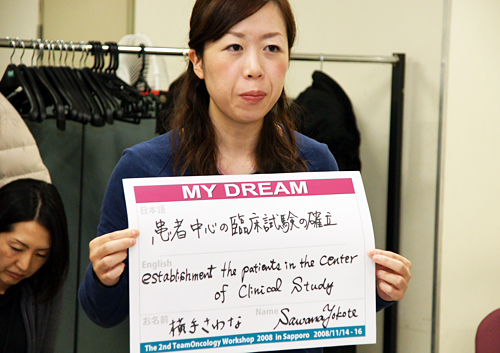 MY DREAM
日本語
患者中心の臨床試験の確立
English
establishment the patients in the center
of Clinical Study
お名前 横手さわな Name Sawana Yokote
The 2nd TeamOncology Workshop 2008 in Sapporo 2008/11/14 - 16